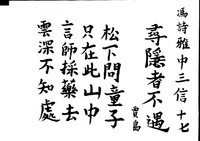 馮詩雅 中三信 十七
尋隱者不遇
賈島
松下問童子
只在此山中
言師採藥去
雲深不知處